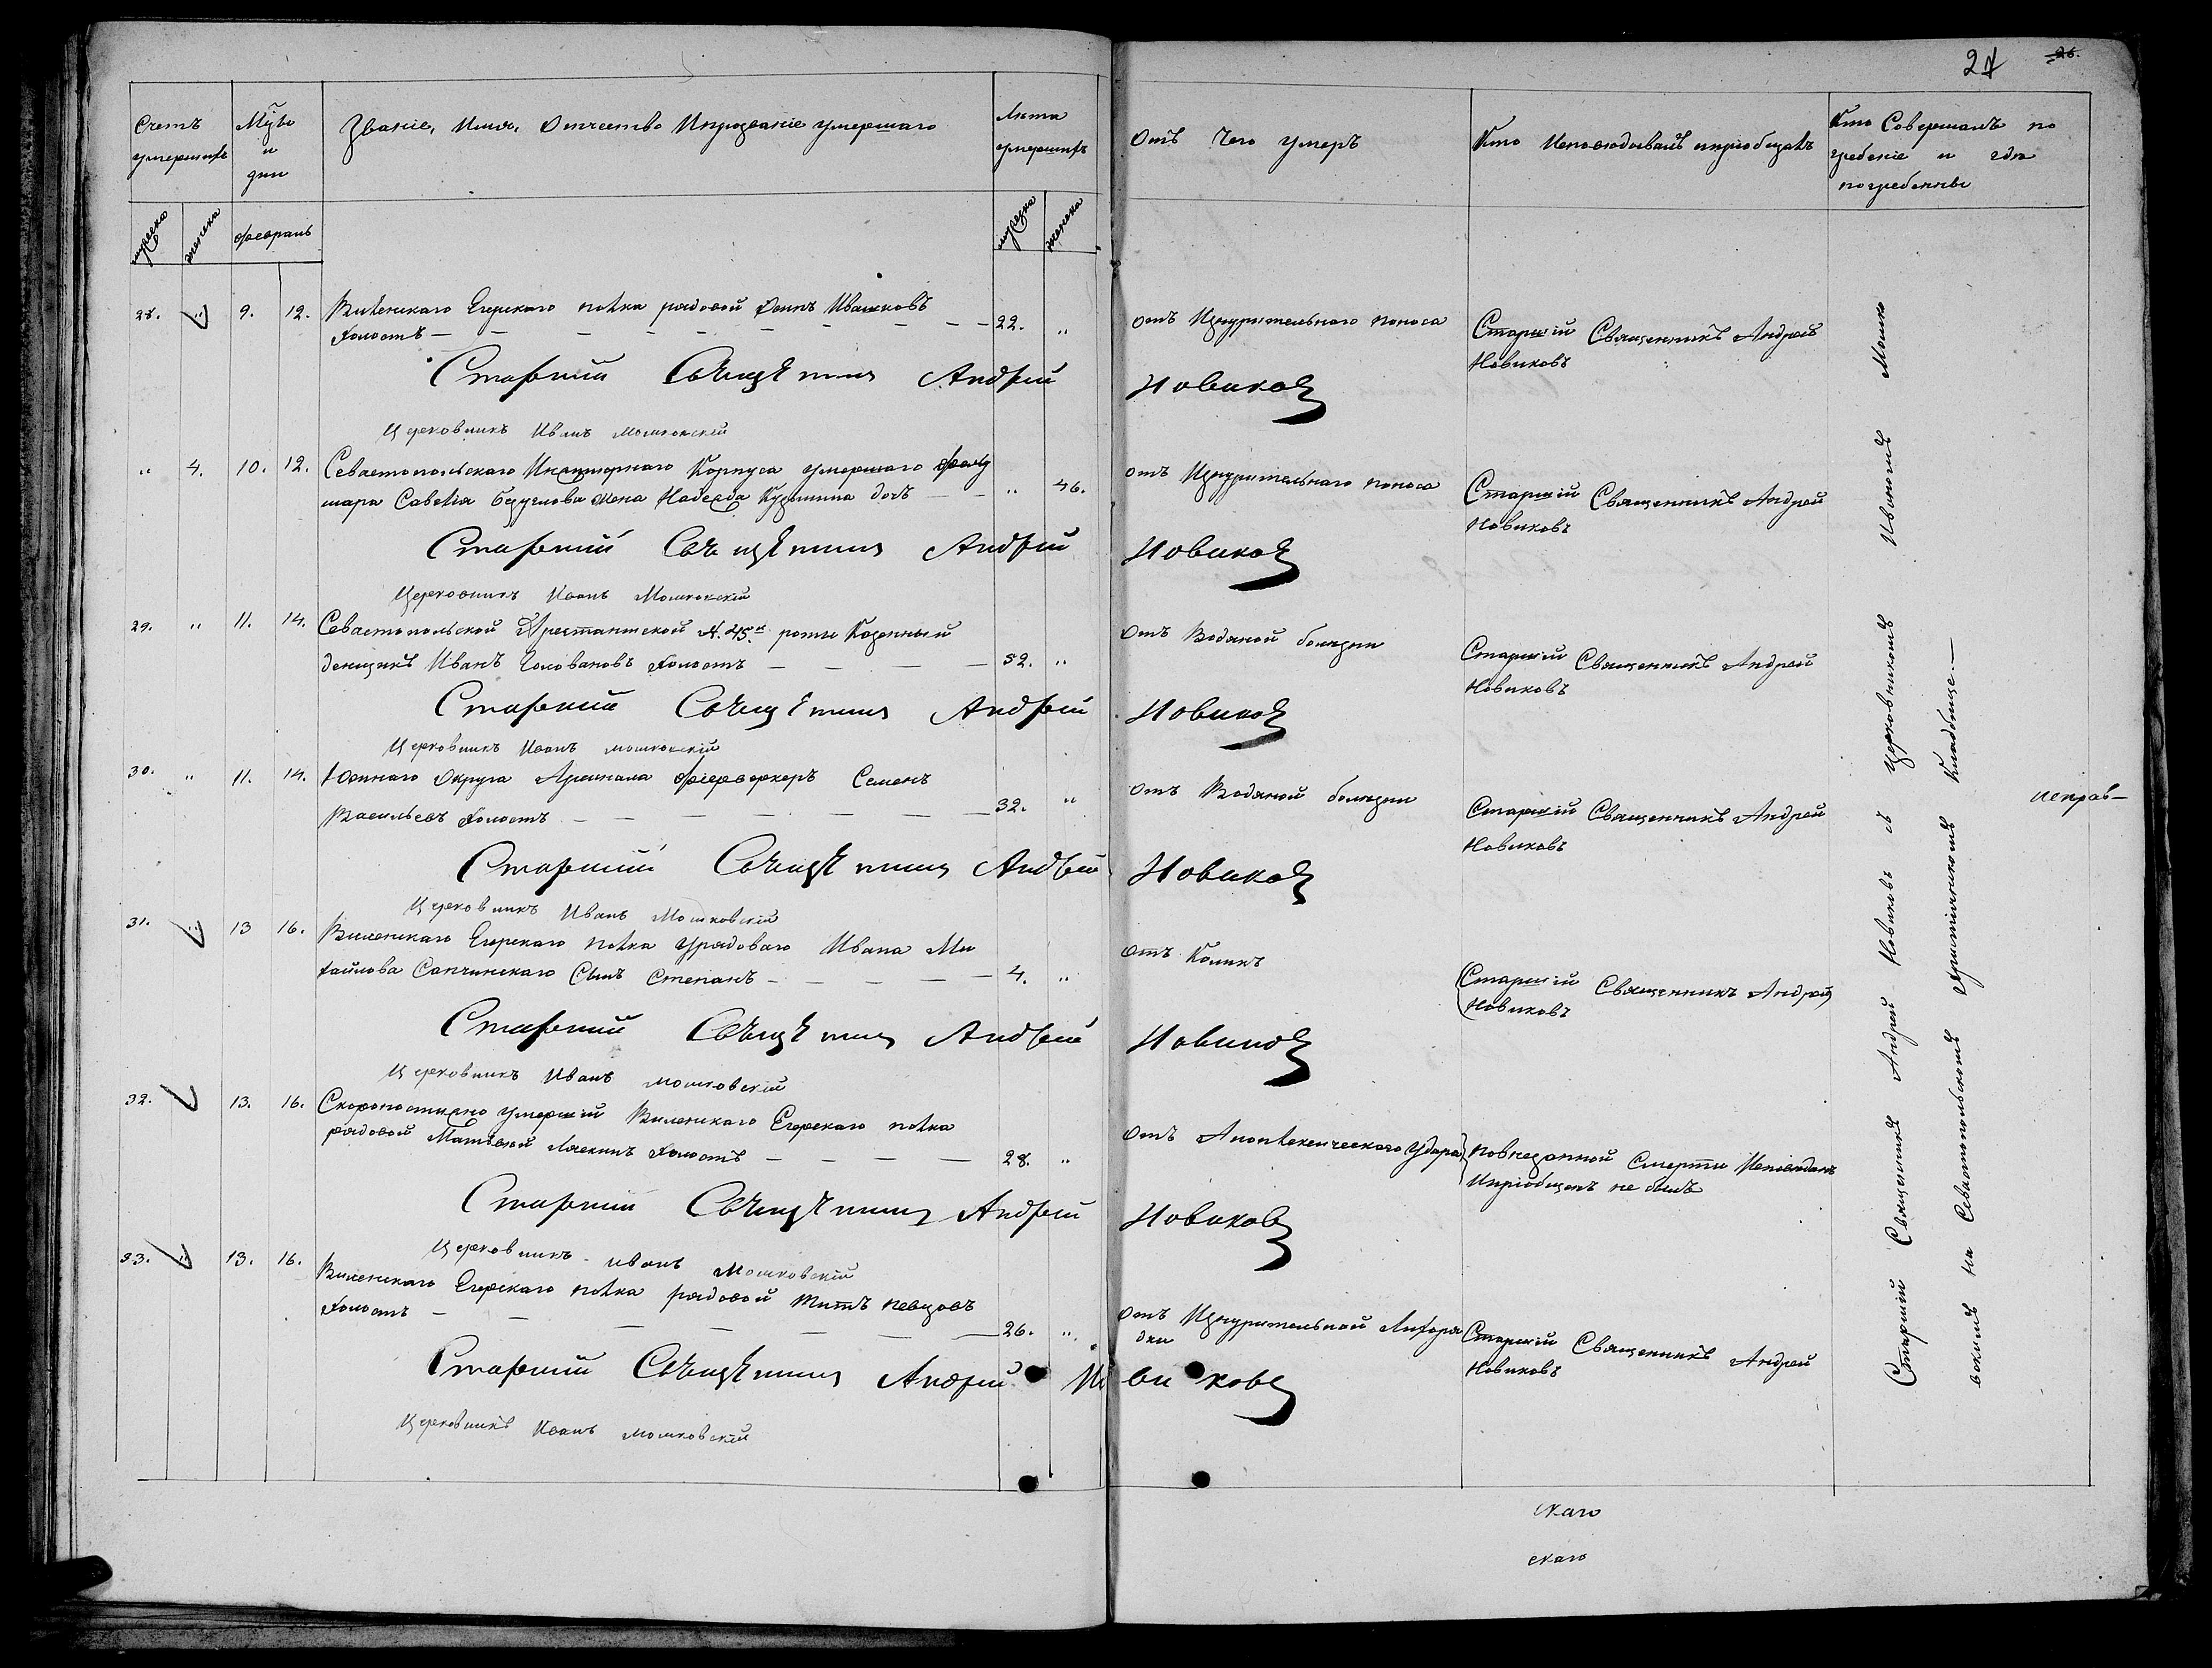 27 26.
Счетъ умершихъ
Мѣсяцъ и дни
Званіе, Имя, Отчество Ипрозваніе умершаго
Лѣта умершихъ
Отъ Чего умеръ
Кто Исповѣдовалъ ипріобщалъ
Кто Совершалъ по
гребеніе и гдѣ
погребенны
мужеска женска февраль мужеска женска
28. " 9. 12. Виленскаго Егерскаго полка рядовой Осипъ Ивашковъ
Холостъ — 22. "
отъ Изнурительнаго поноса
Старшій Священникъ Андрей
Новиковъ
Старший Священникъ Андрей Новиковъ
Церковникъ Иванъ Мошковскій
" 4. 10. 12. Севастопольскаго Инженернаго Корпуса умершаго
шара Савелія жена Надежда Кузьмина дочь — " 46.
отъ Изнурительнаго поноса
Старшій Священникъ Андрей
Новиковъ
Старший Священникъ Андрей Новиковъ
Церковникъ Иванъ Мошковскій
29. " 11. 14. Севастопольской Арестантской №. 45.й роты Казенный
денщикъ Иванъ Головановъ Холостъ — 52. "
Отъ Водяной болезни
Старшій Священникъ Андрей
Новиковъ
Старший Священникъ Андрей Новиковъ
Церковникъ Иванъ Мошковскій
30. " 11. 14. Южнаго Округа Арсенала фіерверкеръ Семенъ
Васильевъ Холостъ — 32. "
отъ Водяной болезни
Старшій Священникъ Андрей
Новиковъ
Старший Священникъ Андрей Новиковъ
Церковникъ Иванъ Мошковскій
31. " 13 16. Виленскаго Егерскаго полка урядоваго Ивана Ми
хайлова Сапчинскаго Сынъ Степанъ — 4. "
отъ Коликъ
Старшій Священникъ Андрей
Новиковъ
Старший Священникъ Андрей Новиковъ
Церковникъ Иванъ Мошковскій
32. 13. 16. Скоропостижно умершій Виленскаго Егерскаго полка
рядовой Матвей Холостъ — 28. "
отъ Апоплексическаго Удара
повнезапной Смерти Исповѣданъ
Ипріобщенъ не былъ
Старший Священникъ Андрей Новиковъ
Церковникъ Иванъ Мошковскій
33. " 13. 16. Виленскаго Егерскаго полка рядовой Титъ Певцовъ
Холостъ — 26. "
Отъ Изнурительной Лихора
дки
Старшій Священникъ Андрей
Новиковъ
Старший Священникъ Андрей Новиковъ
Церковникъ Иванъ Мошковскій
Старшій Священникъ Андрей Новиковъ съ Церковникомъ Иваномъ Мошко
вскимъ на Севастопольскомъ християнскомъ Кладбище.—
исправ—
скаго
скаго